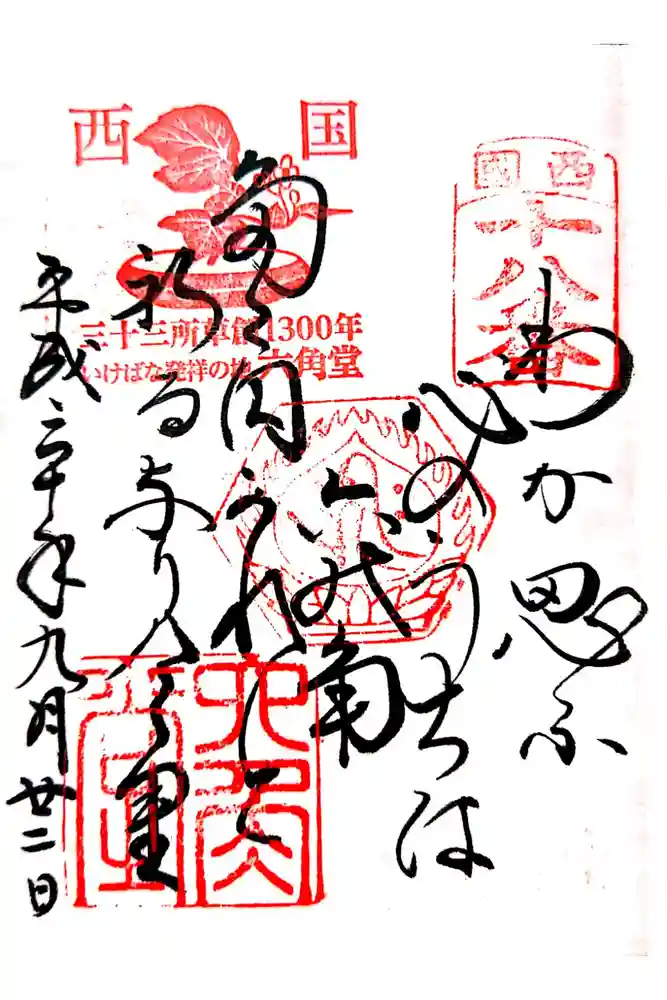 西國
十八番
西国
三十三所草創1300年
いけばな発祥の地 六角堂
わか思ふ
心のうちは
六の角
円かれと
祈るなりけ里
平成三十年九月廿二日
六角